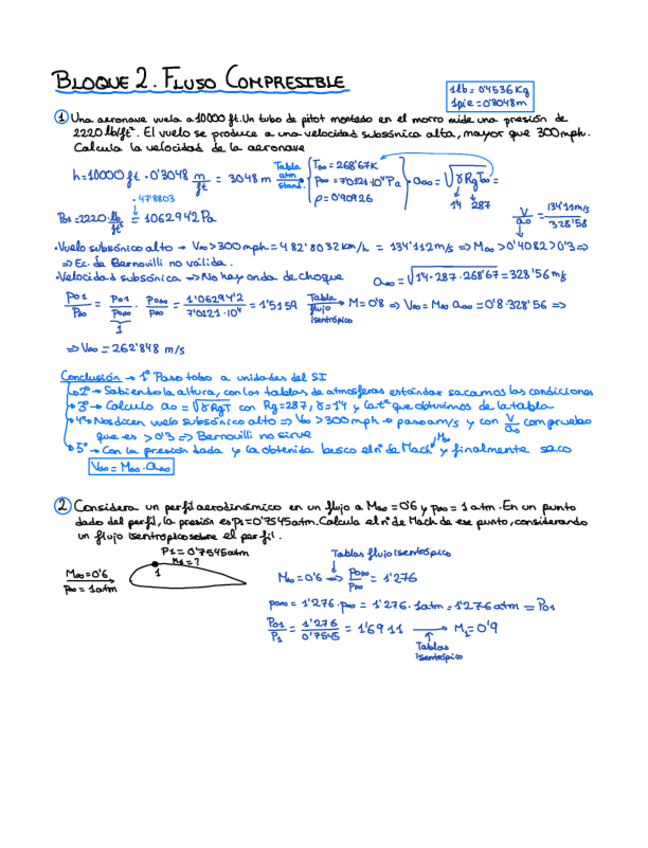 BLOQUE 2. FLUJO COMPRESIBLE
1lb = 0'4536 Kg
1pie = 0'3048m
① Una aeronave vuela a 10000 ft. Un tubo de pitot montado en el morro mide una presión de
2220 lb/ft². El vuelo se produce a una velocidad subsónica alta, mayor que 300mph.
Calcula la velocidad de la aeronave
h=10000 ft · 0'3048 m/ft = 3048 m Tabla atm stand. T∞ = 268'67K
p∞ = 7'0121·10⁴ Pa
ρ = 0'90926
a∞ = √γRgT∞ =
1'4 287
· 47'8803
P01 = 2220 · lb/ft² = 106294'2 Pa
V/a0 = 134'11m/s / 328'58
· Vuelo subsónico alto → V∞ > 300mph = 482'8032 km/h = 134'112 m/s ⇒ M∞ > 0'4082 > 0'3 ⇒
⇒ Ec. de Bernouilli no válida.
· Velocidad subsónica ⇒ No hay onda de choque
a∞ = √1'4·287·268'67 = 328'56 m/s
P01/P∞ = P01/P0∞ · P0∞/P∞ = 1'062942/7'0121·10⁴ = 1'5159 Tabla flujo isentrópico → M=0'8 ⇒ V∞ = M∞ a∞ = 0'8·328'56 ⇒
1
⇒ V∞ = 262'848 m/s
Conclusión → 1º Paso todo a unidades del SI
2º → Sabiendo la altura, con las tablas de atmósferas estándar sacamos las condiciones
3º → Calculo a0 = √γRgT con Rg=287, γ=1'4 y la tª que obtuvimos de la tabla
4º → Nos dicen vuelo subsónico alto ⇒ V∞ > 300mph → paso a m/s y con V/a0 compruebo
que es > 0'3 ⇒ Bernouilli no sirve
M∞
5º → Con la presión dada y la obtenida busco el nº de Mach y finalmente saco
V∞ = M∞ · a∞
② Considera un perfil aerodinámico en un flujo a M∞ = 0'6 y p∞ = 1 atm. En un punto
dado del perfil, la presión es P1 = 0'7545atm. Calcula el nº de Mach de ese punto, considerando
un flujo isentrópico sobre el perfil.
P1 = 0'7545atm
M1 = ?
1
M∞ = 0'6
p∞ = 1atm
Tablas flujo isentrópico
M∞ = 0'6 ⇒ p0∞/p∞ = 1'276
p0∞ = 1'276 · p∞ = 1'276 · 1atm = 1'276 atm = P01
P01/P1 = 1'276/0'7545 = 1'6911 → M1 = 0'9
Tablas
isentrópico